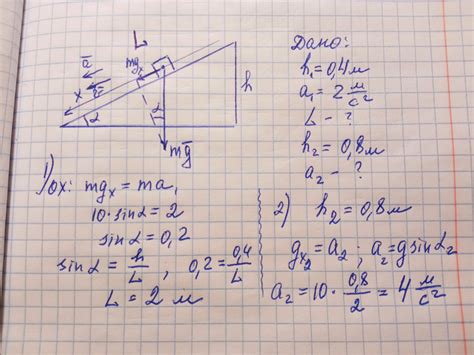 L
mgₓ
a̅
x
v̅
h
α
α
mg̅
Дано:
h₁ = 0,4 м
a₁ = 2 м/с²
L - ?
h₂ = 0,8 м
a₂ - ?
1) Ox: mgₓ = ma₁
10·sinα = 2
sinα = 0,2
sinα = h/L, 0,2 = 0,4/L
L = 2 м
2) h₂ = 0,8 м
gₓ₂ = a₂; a₂ = g sinα₂
a₂ = 10 · 0,8/2 = 4 м/с²